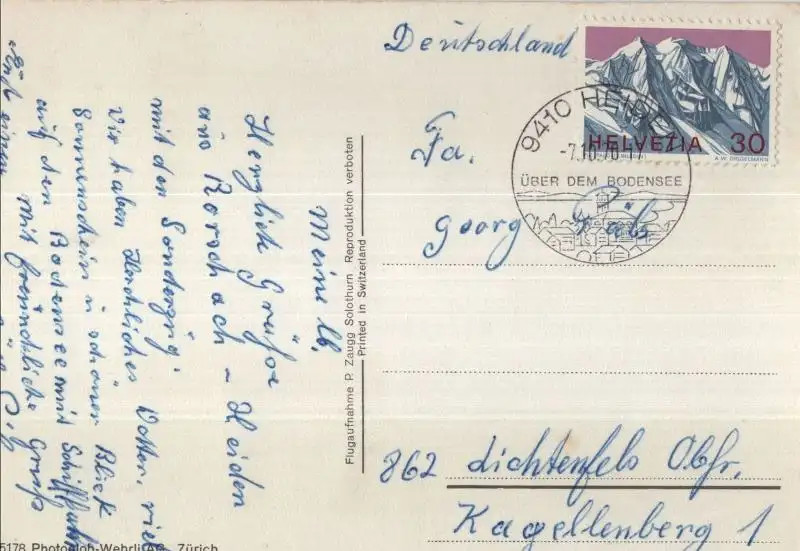 Meine lb.
Herzlich Grüße
aus Rorschach - Heiden
mit den Sonderzug.
Wir haben Herrliches Wetter, viel
Sonnenschein u. schöner Blick
auf den Bodensee mit Schifffahrt
Mit freundliche Grüße
Flugaufnahme P. Zaugg Solothurn Reproduktion verboten
Printed in Switzerland
5178 Photoglob-Wehrli AG, Zürich
Deutschland
HELVETIA 30
9410 HEIDEN
-7.10.70-17
ÜBER DEM BODENSEE
Fa.
Georg
862 Lichtenfels Obfr.
Kagellenberg 1